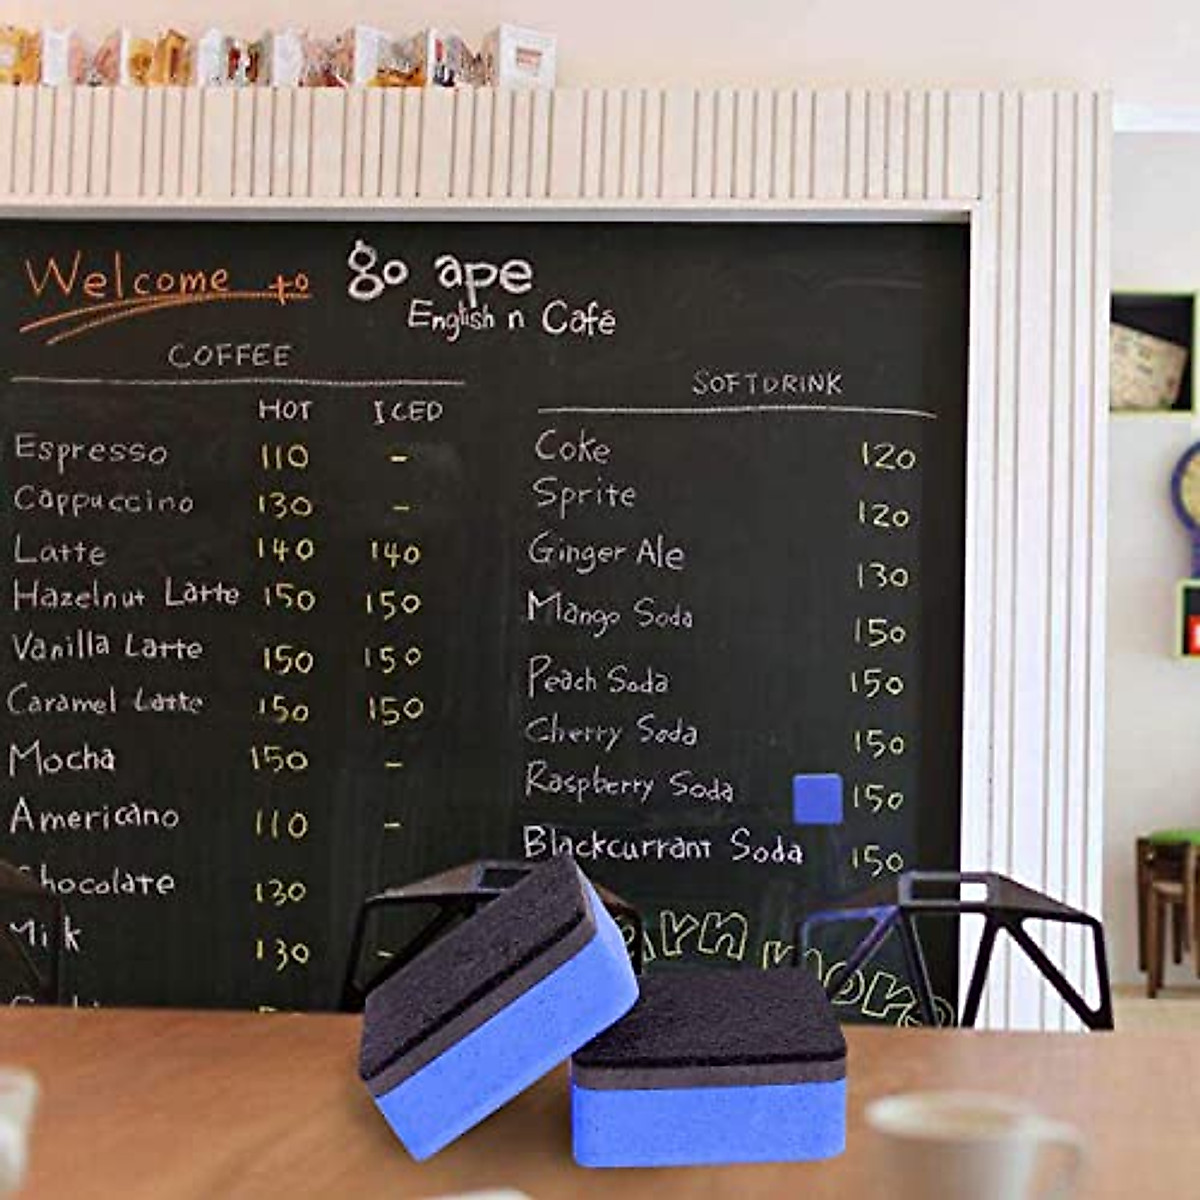 Welcome to go ape
English n Café
COFFEE
HOT ICED
Espresso 110 -
Cappuccino 130 -
Latte 140 140
Hazelnut Latte 150 150
Vanilla Latte 150 150
Caramel Latte 150 150
Mocha 150 -
Americano 110 -
Chocolate 130
Milk 130 -
SOFTDRINK
Coke 120
Sprite 120
Ginger Ale 130
Mango Soda 150
Peach Soda 150
Cherry Soda 150
Raspberry Soda 150
Blackcurrant Soda 150